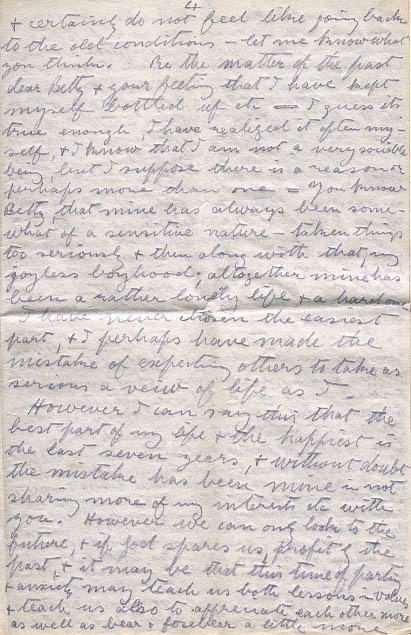 4
+ certainly do not feel like going back
to the old conditions - let me know what
you think. Re the matter of the past
dear Betty + your feeling that I have kept
myself bottled up etc — I guess its
true enough, I have realized it often my-
self, + I know that I am not a very sociable
being, but I suppose there is a reason or
perhaps more than one = you know
Betty, that mine has always been some-
what of a sensitive nature - taken things
too seriously + then along with that my
joyless boyhood; altogether mine has
been a rather lonely life + a hard one
I have never chosen the easiest
part, + I perhaps have made the
mistake of expecting others to take as
serious a veiw of life as I.
However I can say this that the
best part of my life + the happiest is
the last seven years, + without doubt
the mistake has been mine in not
sharing more of my interests etc with
you. However we can only look to the
future, + if God spares us, profit by the
past, + it may be that this time of parting
+ anxiety may teach us both lessons - values
+ teach us also to appreciate each other more
as well as bear + forebear a little more